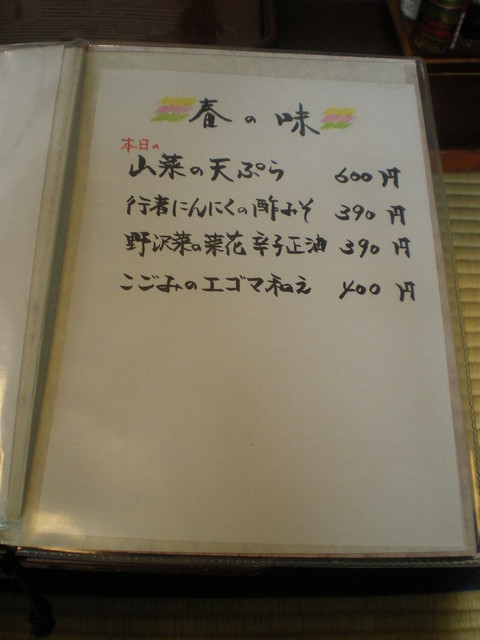 春の味
本日の
山菜の天ぷら 600円
行者にんにくの酢みそ 390円
野沢菜の菜花辛子正油 390円
こごみのエゴマ和え 400円